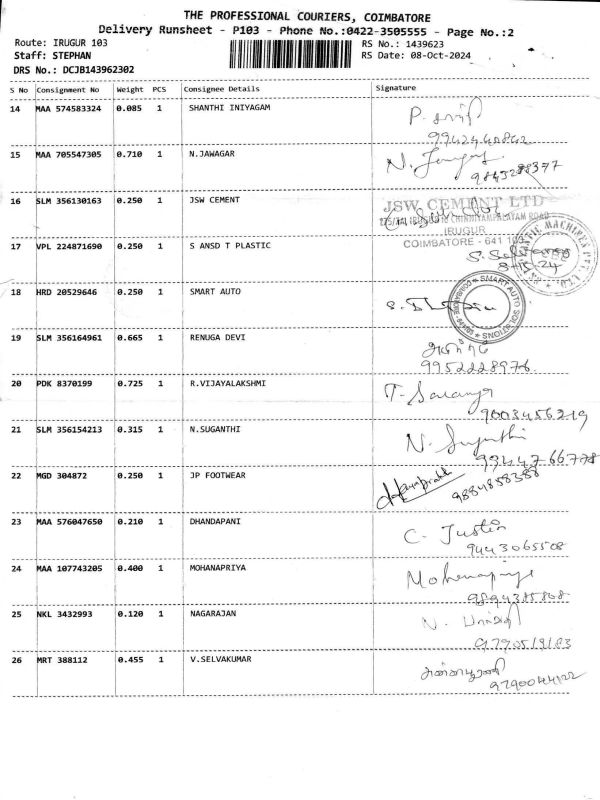 THE PROFESSIONAL COURIERS, COIMBATORE
Delivery Runsheet - P103 - Phone No.:0422-3505555 - Page No.:2
Route: IRUGUR 103 RS No.: 1439623
Staff: STEPHAN RS Date: 08-Oct-2024
DRS No.: DCJB143962302
S No Consignment No Weight PCS Consignee Details Signature
14 MAA 574583324 0.085 1 SHANTHI INIYAGAM P.
9942440842
15 MAA 705547305 0.710 1 N.JAWAGAR N.
9843288377
16 SLM 356130163 0.250 1 JSW CEMENT JSW CEMENT LTD
IRUGUR
17 VPL 224871690 0.250 1 S ANSD T PLASTIC COIMBATORE - 641 103
18 HRD 20529646 0.250 1 SMART AUTO SMART AUTO SOLUTIONS
19 SLM 356164961 0.665 1 RENUGA DEVI
9952228976
20 PDK 8370199 0.725 1 R.VIJAYALAKSHMI T. Saranya
9003456219
21 SLM 356154213 0.315 1 N.SUGANTHI N. Suganthi
9344766778
22 MGD 304872 0.250 1 JP FOOTWEAR
9884858388
23 MAA 576047650 0.210 1 DHANDAPANI C. Justin
9443065508
24 MAA 107743205 0.400 1 MOHANAPRIYA Mohanapriya
9894385808
25 NKL 3432993 0.120 1 NAGARAJAN N.
26 MRT 388112 0.455 1 V.SELVAKUMAR
9790044122